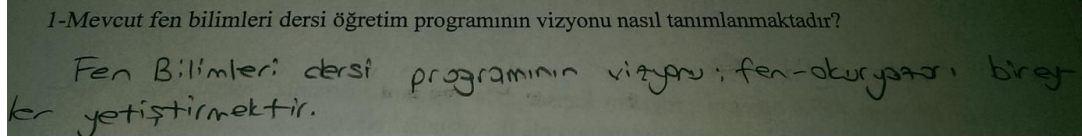 1-Mevcut fen bilimleri dersi öğretim programının vizyonu nasıl tanımlanmaktadır?
Fen Bilimleri dersi programının vizyonu; fen-okuryazarı birey
ler yetiştirmektir.